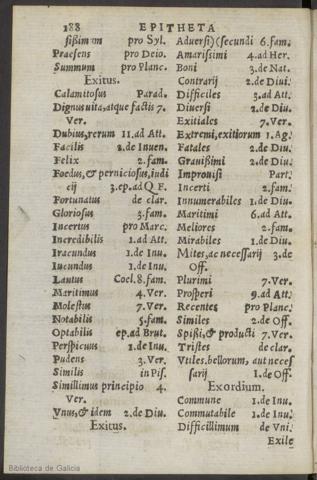 188 EPITHETA
sißimum pro Syl.
Praesens pro Deio.
Summum pro Planc.
Exitus.
Calamitosus Parad.
Dignus uita, atque factis 7.
Ver.
Dubius, rerum 11. ad Att.
Facilis 2. de Inuen.
Felix 2. fam.
Foedus, & perniciosus, iudi
cij 3. ep. ad Q F.
Fortunatus de clar.
Gloriosus 3. fam.
Incertus pro Marc.
Incredibilis 1. ad Att.
Iracundus 1. de Inu.
Iucundus 1. de Inu.
Lautus Coel. 8. fam.
Maritimus 4. Ver.
Molestus 7. Ver.
Notabilis 5. fam.
Optabilis ep. ad Brut.
Perspicuus 1. de Inu.
Pudens 3. Ver.
Similis in Pis.
Simillimus principio 4.
Ver.
Vnus, & idem 2. de Diu.
Exitus.
Aduersi) (secundi 6. fam.
Amarissimi 4. ad Her.
Boni 3. de Nat.
Contrarij 2. de Diui.
Difficiles 3. ad Att.
Diuersi 2. de Diu.
Exitiales 7. Ver.
Extremi, exitiorum 1. Ag.
Fatales 2. de Diu.
Grauißimi 2. de Diu.
Improuisi Part.
Incerti 2. fam.
Innumerabiles 1. de Diu.
Maritimi 6. ad Att.
Meliores 2. fam.
Mirabiles 1. de Diu.
Mites, ac necessarij 3. de
Off.
Plurimi 7. Ver.
Prosperi 9. ad Att.
Recentes pro Planc.
Similes 2. de Off.
Spißi, & producti 7. Ver.
Tristes de clar.
Vtiles. bellorum, aut neces
sarij 1. de Off.
Exordium.
Commune 1. de Inu.
Commutabile 1. de Inu.
Difficillimum de Vni.
Exile
Biblioteca de Galicia